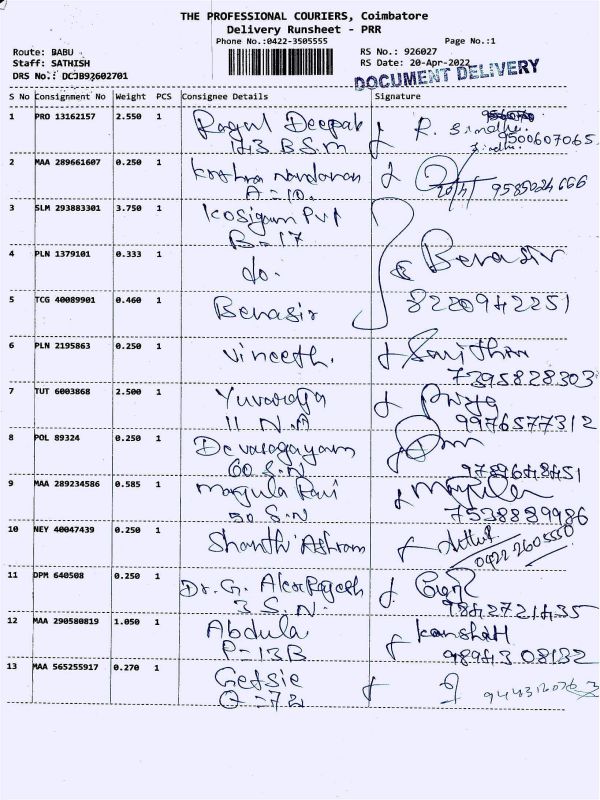 THE PROFESSIONAL COURIERS, Coimbatore
Delivery Runsheet - PRR
Phone No.:0422-3505555 Page No.:1
Route: BABU RS No.: 926027
Staff: SATHISH RS Date: 20-Apr-2022
DRS No.: DCJB92602701 DOCUMENT DELIVERY
S No Consignment No Weight PCS Consignee Details Signature
1 PRO 13162157 2.550 1 Ragul Deepak R. Sindhu
143 B.S.M 9500607065
2 MAA 289661607 0.250 1 Krishna nandanan
A=10. 9585024666
3 SLM 293883301 3.750 1 Kosigam Pvt
B=17
4 PLN 1379101 0.333 1 do. Benasir
5 TCG 40089901 0.460 1 Benasir 8220942251
6 PLN 2195863 0.250 1 Vineeth.
7395828303
7 TUT 6003868 2.500 1 Yuvaraja Priya
11 N.A 9976577312
8 POL 89324 0.250 1 Devasagayam
60 S.N
9 MAA 289234586 0.585 1 Manjula Ravi Manjula
50 S.N 7538889986
10 NEY 40047439 0.250 1 Shanthi Ashram
0422 2605550
11 DPM 640508 0.250 1 Dr. G. Alex Rajesh
3 S.N. 9842721435
12 MAA 290580819 1.050 1 Abdula
P=13B 9894308132
13 MAA 565255917 0.270 1 Getsie